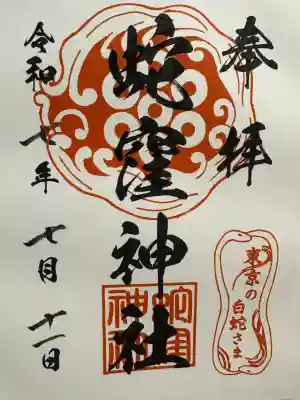 奉拝
蛇窪神社
令和七年
七月十一日
東京の
白蛇さま
蛇窪
神社